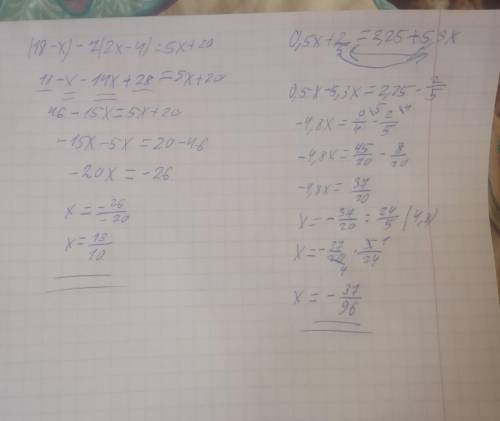 (18-x)-7(2x-4)=5x+20
18-x-14x+28=5x+20
46-15x=5x+20
-15x-5x=20-46
-20x=-26
x=\frac{-26}{-20}
x=\frac{13}{10}
0,5x-5,3x=2,25-\frac{2}{5}
-4,8x=\frac{9}{4}-\frac{2}{5}
-4,8x=\frac{45}{20}-\frac{8}{20}
-4,8x=\frac{37}{20}
x=-\frac{37}{20}:\frac{24}{5} (4,8)
x=-\frac{37}{20}·\frac{5}{24}
x=-\frac{37}{96}